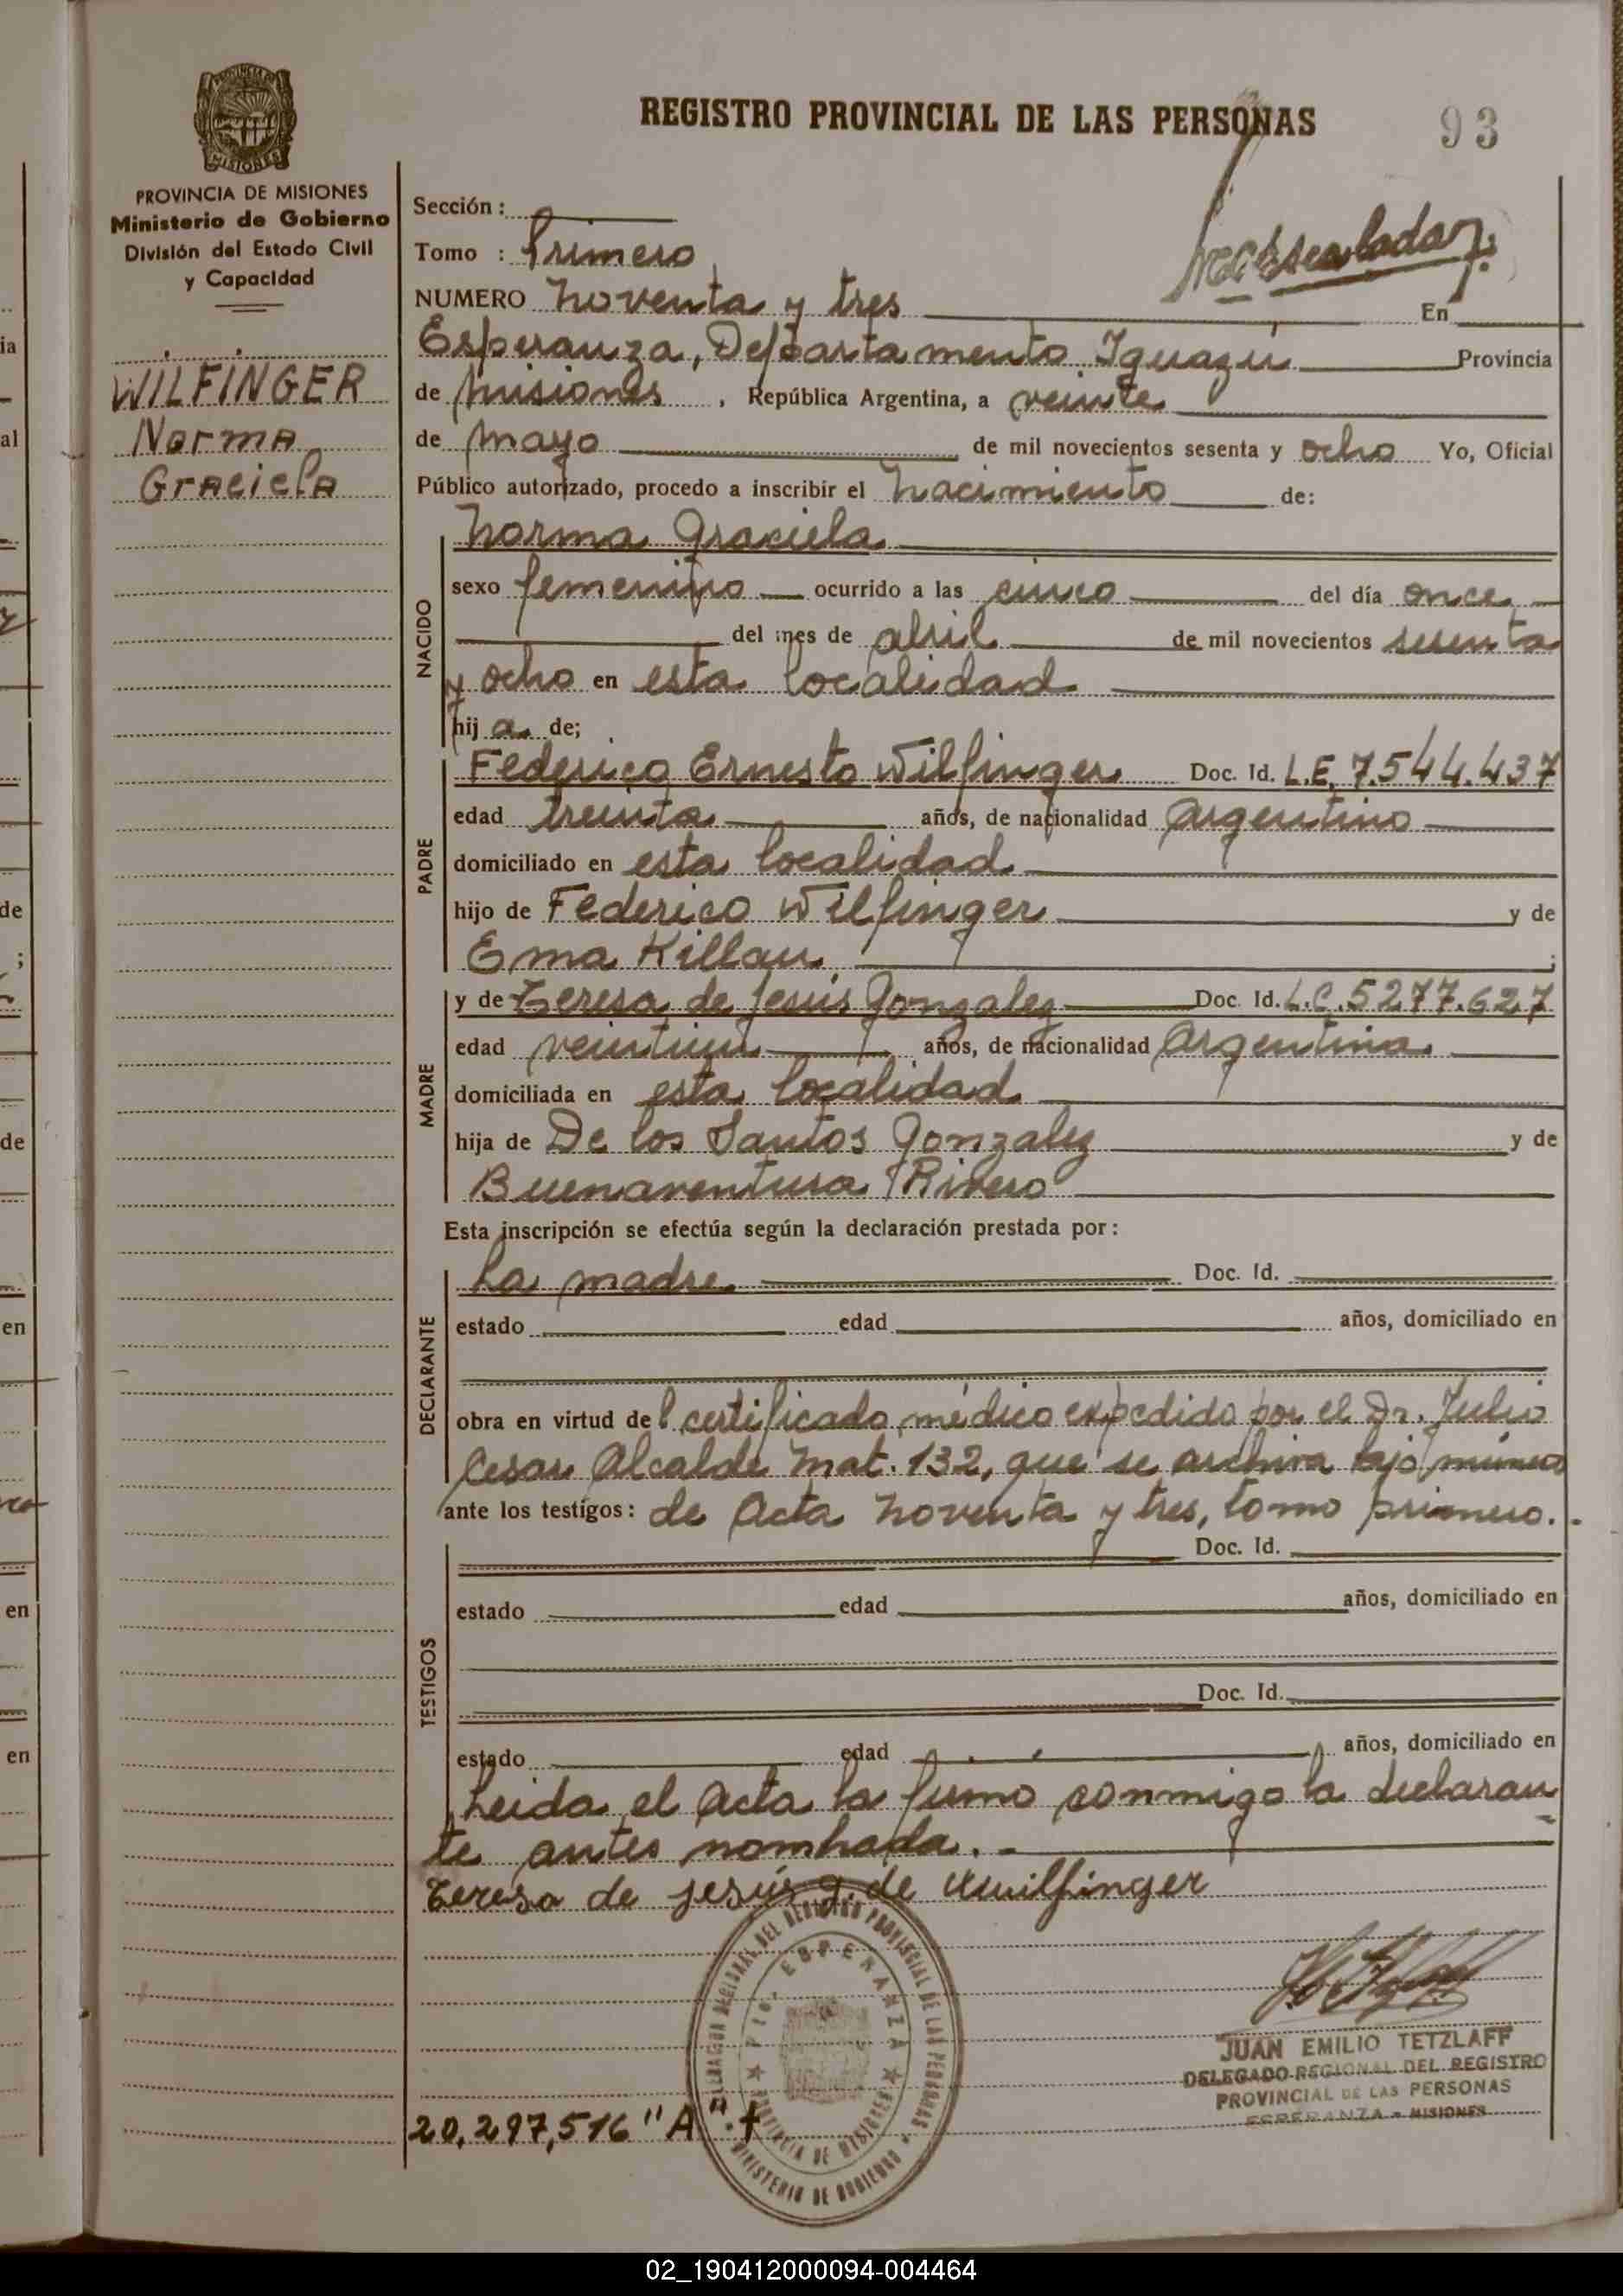 REGISTRO PROVINCIAL DE LAS PERSONAS
93
PROVINCIA DE MISIONES
Ministerio de Gobierno
División del Estado Civil
y Capacidad
WILFINGER
Norma
Graciela
Sección:
Tomo : Primero
NUMERO Noventa y tres En
Esperanza, Departamento Iguazú Provincia
de Misiones, República Argentina, a veinte
de Mayo de mil novecientos sesenta y ocho Yo, Oficial
Público autorizado, procedo a inscribir el Nacimiento de:
NACIDO
Norma Graciela
sexo femenino ocurrido a las cinco del día once
del mes de abril de mil novecientos sesenta
y ocho en esta localidad
hija de;
PADRE
Federico Ernesto Wilfinger Doc. Id. L.E. 7.544.437
edad treinta años, de nacionalidad Argentino
domiciliado en esta localidad
hijo de Federico Wilfinger y de
Ema Killau ;
MADRE
y de Teresa de Jesús Gonzalez Doc. Id. L.C. 5277.627
edad veintiun años, de nacionalidad Argentina
domiciliada en esta localidad
hija de De los Santos Gonzalez y de
Buenaventura Rivero
Esta inscripción se efectúa según la declaración prestada por:
DECLARANTE
La madre Doc. Id.
estado edad años, domiciliado en
obra en virtud del certificado médico expedido por el Dr. Julio
Cesar Alcalde Mat. 132, que se archiva bajo número
ante los testigos: de Acta Noventa y tres, tomo primero.-
TESTIGOS
Doc. Id.
estado edad años, domiciliado en
Doc. Id.
estado edad años, domiciliado en
Leida el Acta la firmo conmigo la declaran
te antes nombrada.-
Teresa de Jesús g. de Wuilfinger
DELEGACION REGIONAL DEL REGISTRO PROVINCIAL DE LAS PERSONAS
Pto. ESPERANZA
PROVINCIA DE MISIONES
MINISTERIO DE GOBIERNO
JUAN EMILIO TETZLAFF
DELEGADO REGIONAL DEL REGISTRO
PROVINCIAL DE LAS PERSONAS
ESPERANZA - MISIONES
20,297,516 "A".
02_190412000094-004464